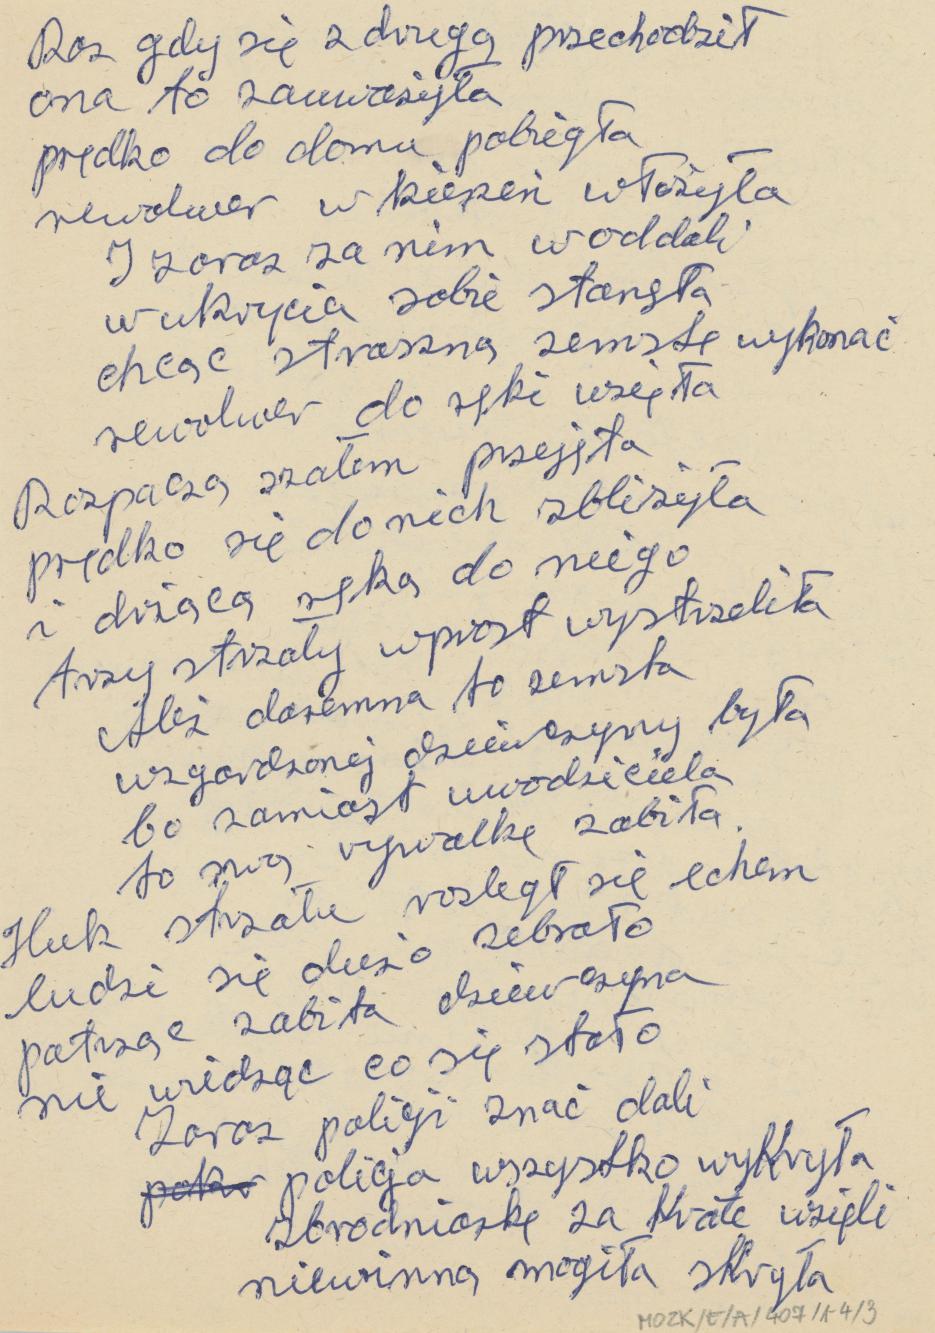 Raz gdy się z drugą przechodził
ona to zauważyła
prędko do domu pobiegła
rewolwer w kieszeń włożyła
I zaraz za nim w oddali
w ukryciu sobie stanęła
chcąc straszną zemstę wykonać
rewolwer do ręki wzięła
Rozpaczą szałem przejęta
prędko się do nich zbliżyła
i drżącą ręką do niego
trzy strzały wprost wystrzeliła
Ależ daremna to zemsta
wzgardzonej dziewczyny była
bo zamiast uwodziciela
to swą rywalkę zabiła.
Huk strzału rozległ się echem
ludzi się dużo zebrało
patrząc zabita dziewczyna
nie widząc co się stało
Zaraz policji znać dali
policja wszystko wykryła
zbrodniarkę za kratę wzięli
niewinną mogiła skryła
MOZK/E/A/407/1-4/3